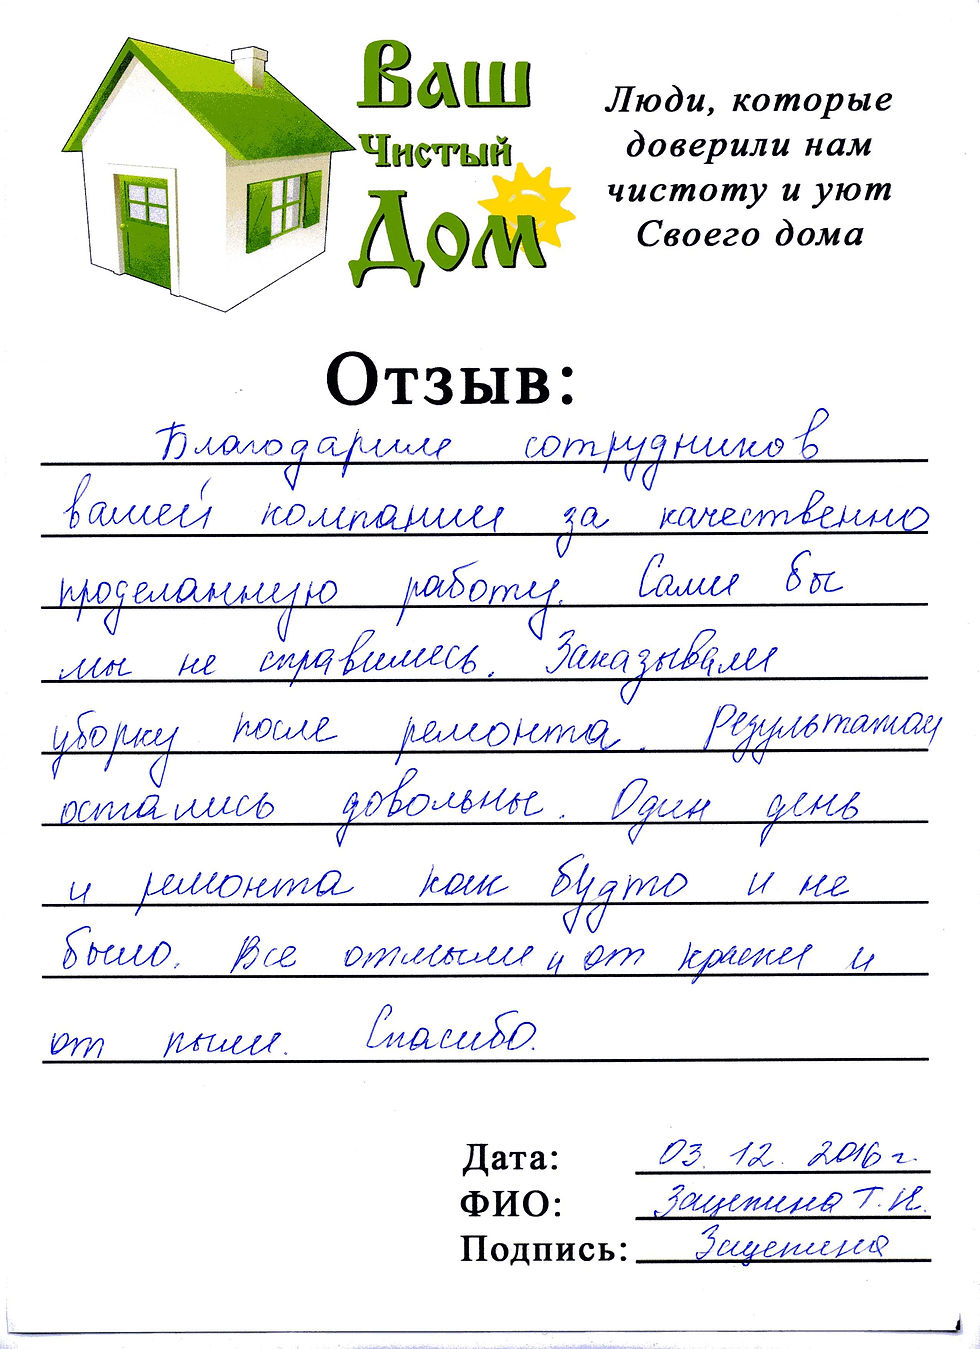 Ваш
Чистый
Дом
Люди, которые
доверили нам
чистоту и уют
Своего дома
Отзыв:
Благодарили сотрудников
вашей компании за качественно
проделанную работу. Сами бы
мы не справились. Заказывали
уборку после ремонта. Результатом
остались довольны. Один день
и ремонта как будто и не
было. Все отмыли и от краски и
от пыли. Спасибо.
Дата: 03.12.2016 г.
ФИО: Зацепина Т. Н.
Подпись: Зацепина